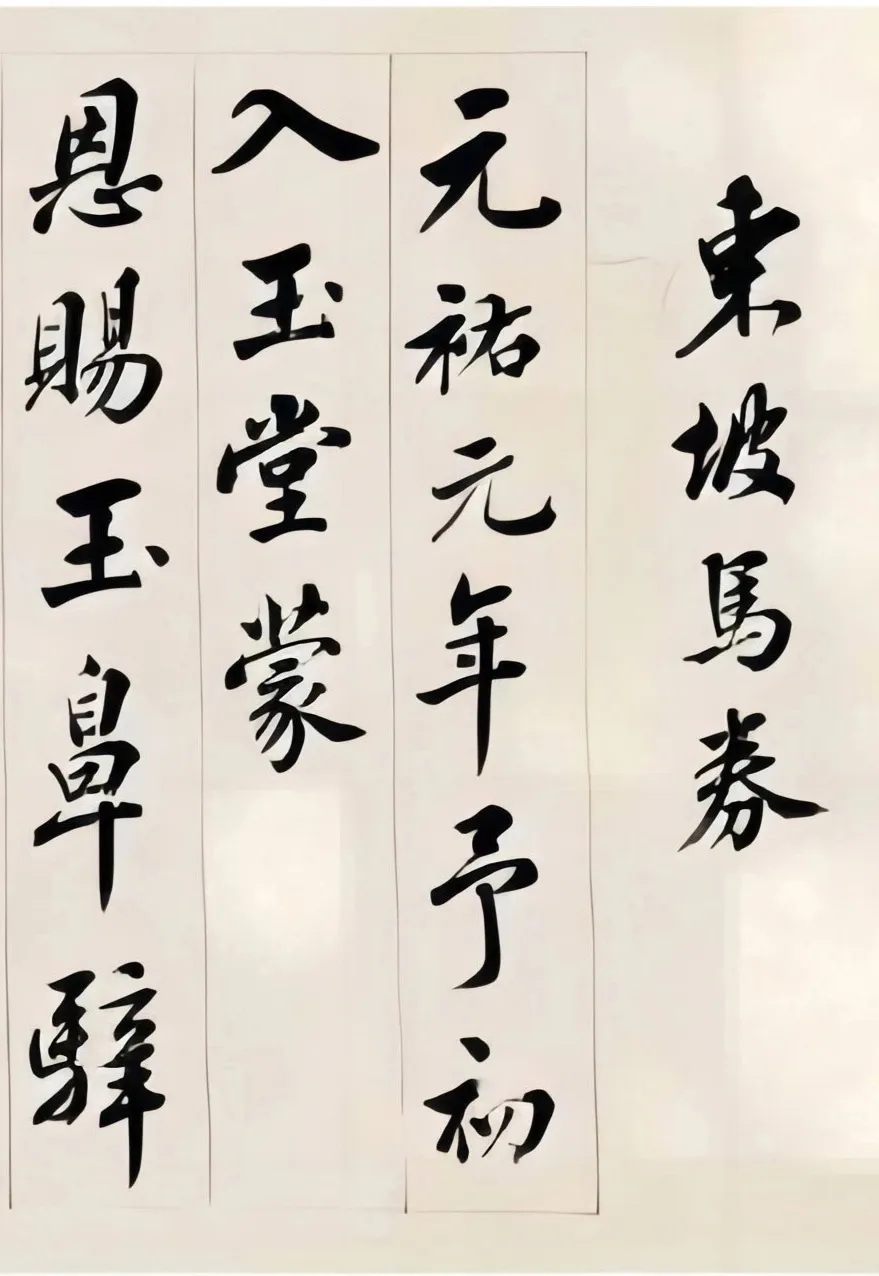 東坡馬券
元祐元年予初
入玉堂蒙
恩賜玉鼻騂